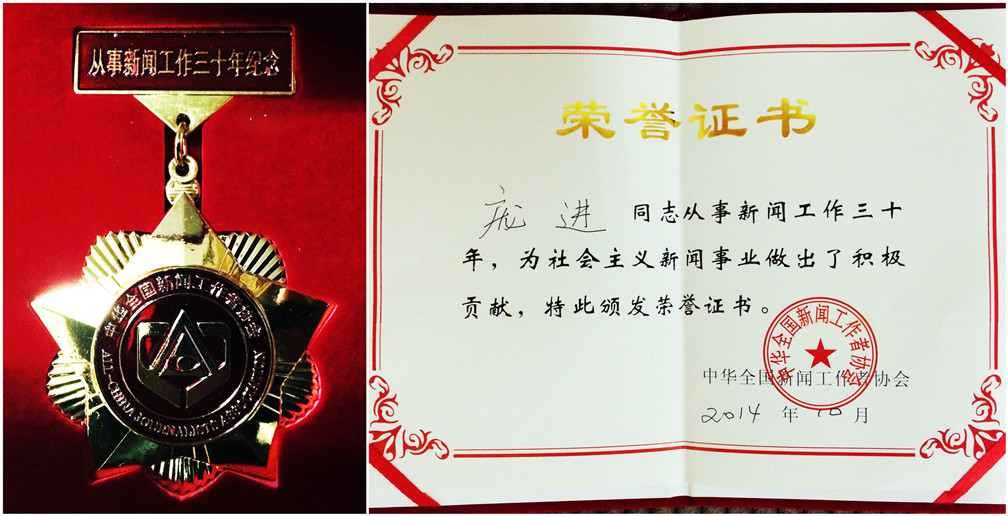 从事新闻工作三十年纪念
中华全国新闻工作者协会
ALL-CHINA JOURNALISTS ASSOCIATION
荣誉证书
庞进 同志从事新闻工作三十
年，为社会主义新闻事业做出了积极
贡献，特此颁发荣誉证书。
中华全国新闻工作者协会
中华全国新闻工作者协会
2014 年 10 月